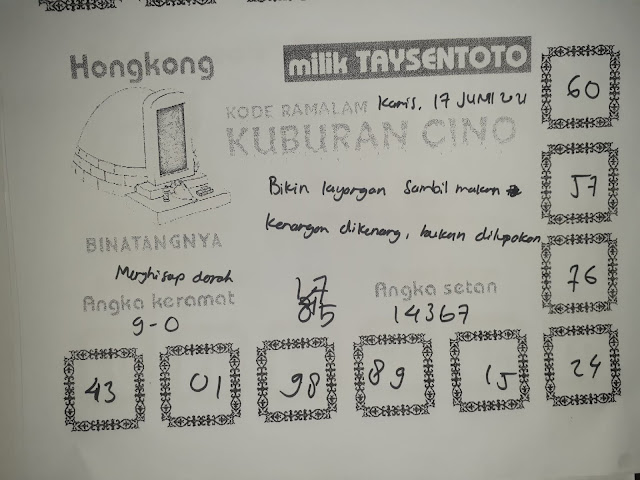 Hongkong
milik TAYSENTOTO
KODE RAMALAM Kamis, 17 JUNI 2021
KUBURAN CINO
60
Bikin layangan sambil makan
57
kenangan dikenang, bukan dilupakan
BINATANGNYA
Menghisap darah
76
Angka keramat
Angka setan
9-0
14367
43
01
98
89
15
24